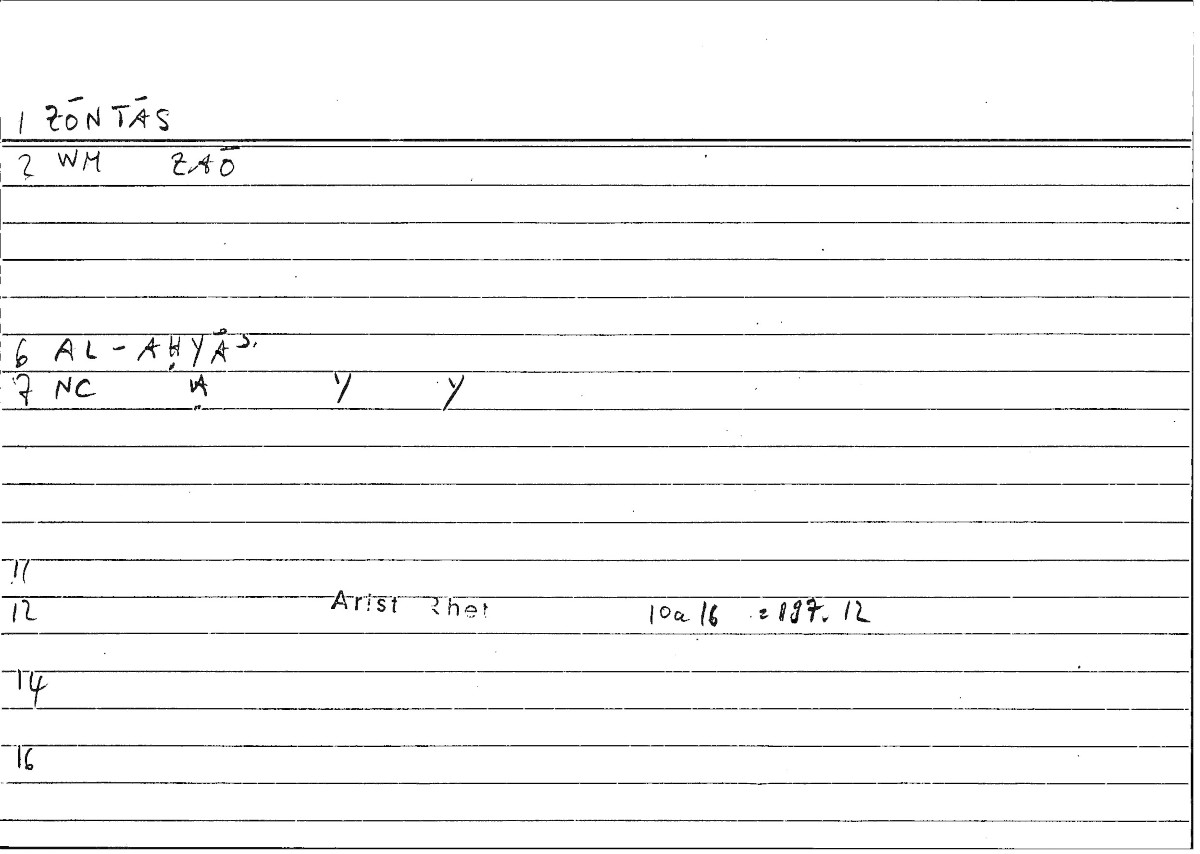 1 ZŌNTĀS
2 WM ZAŌ
6 AL-AḤYĀʾ
7 NC Ḥ Y Y
11
12 Arist Rhet 10a16 = 197.12
14
16